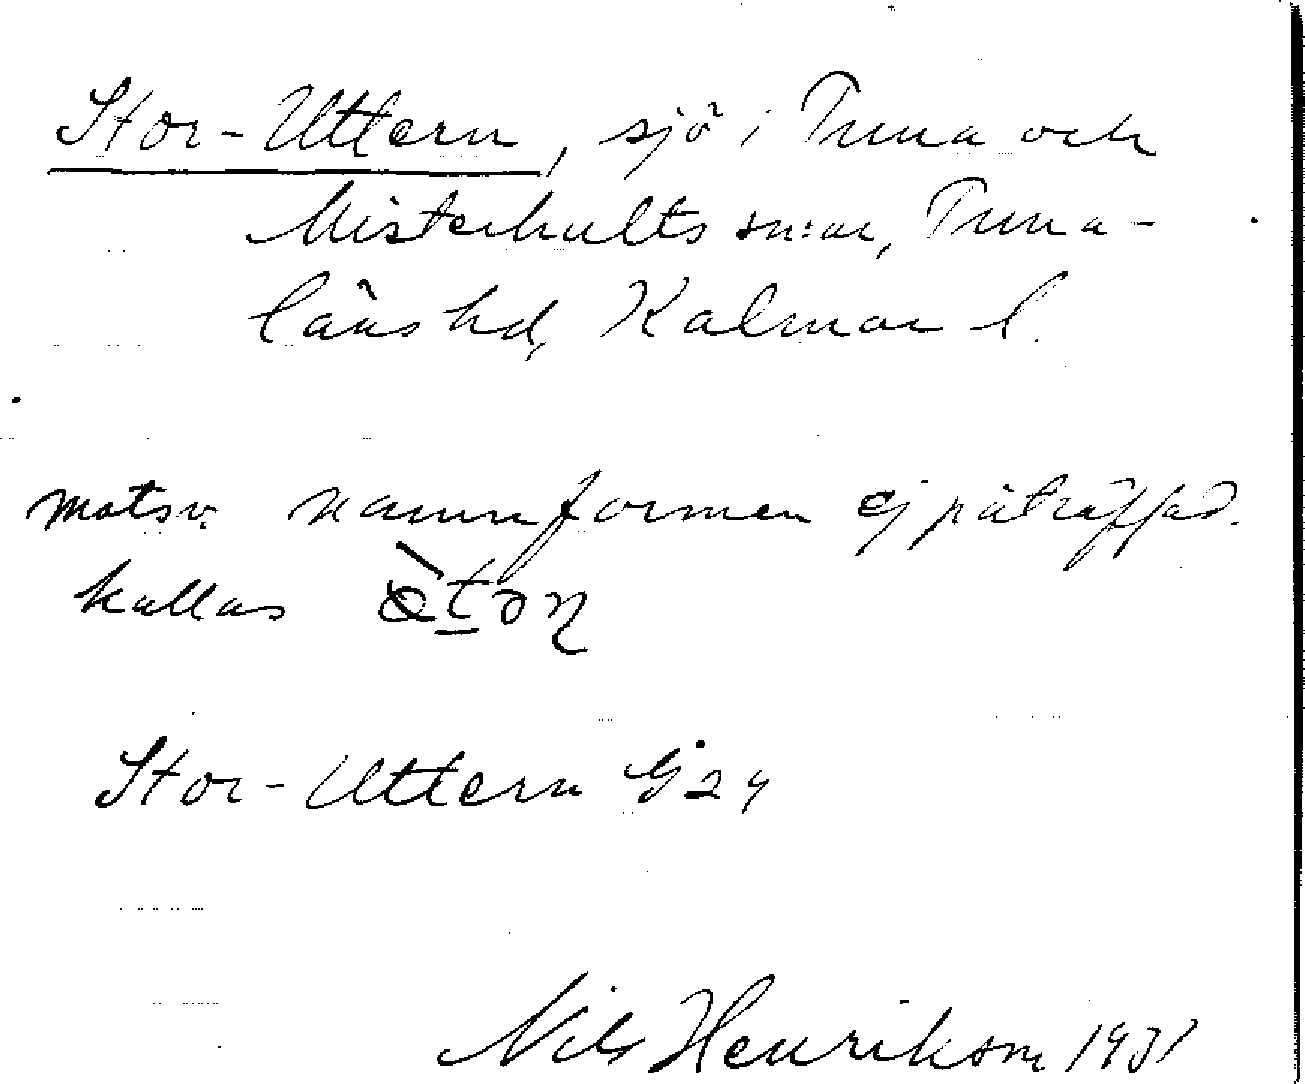 Stor-Uttern, sjö i Tuna och
Misterhults sn:ar, Tuna-
läns hd, Kalmar l.
motsv. namnformen ej påträffad.
kallas
Stor-Uttern G24
Nils Henrikson 1931